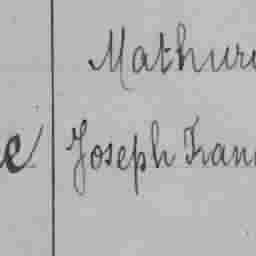 Mathuri
e Joseph Fran